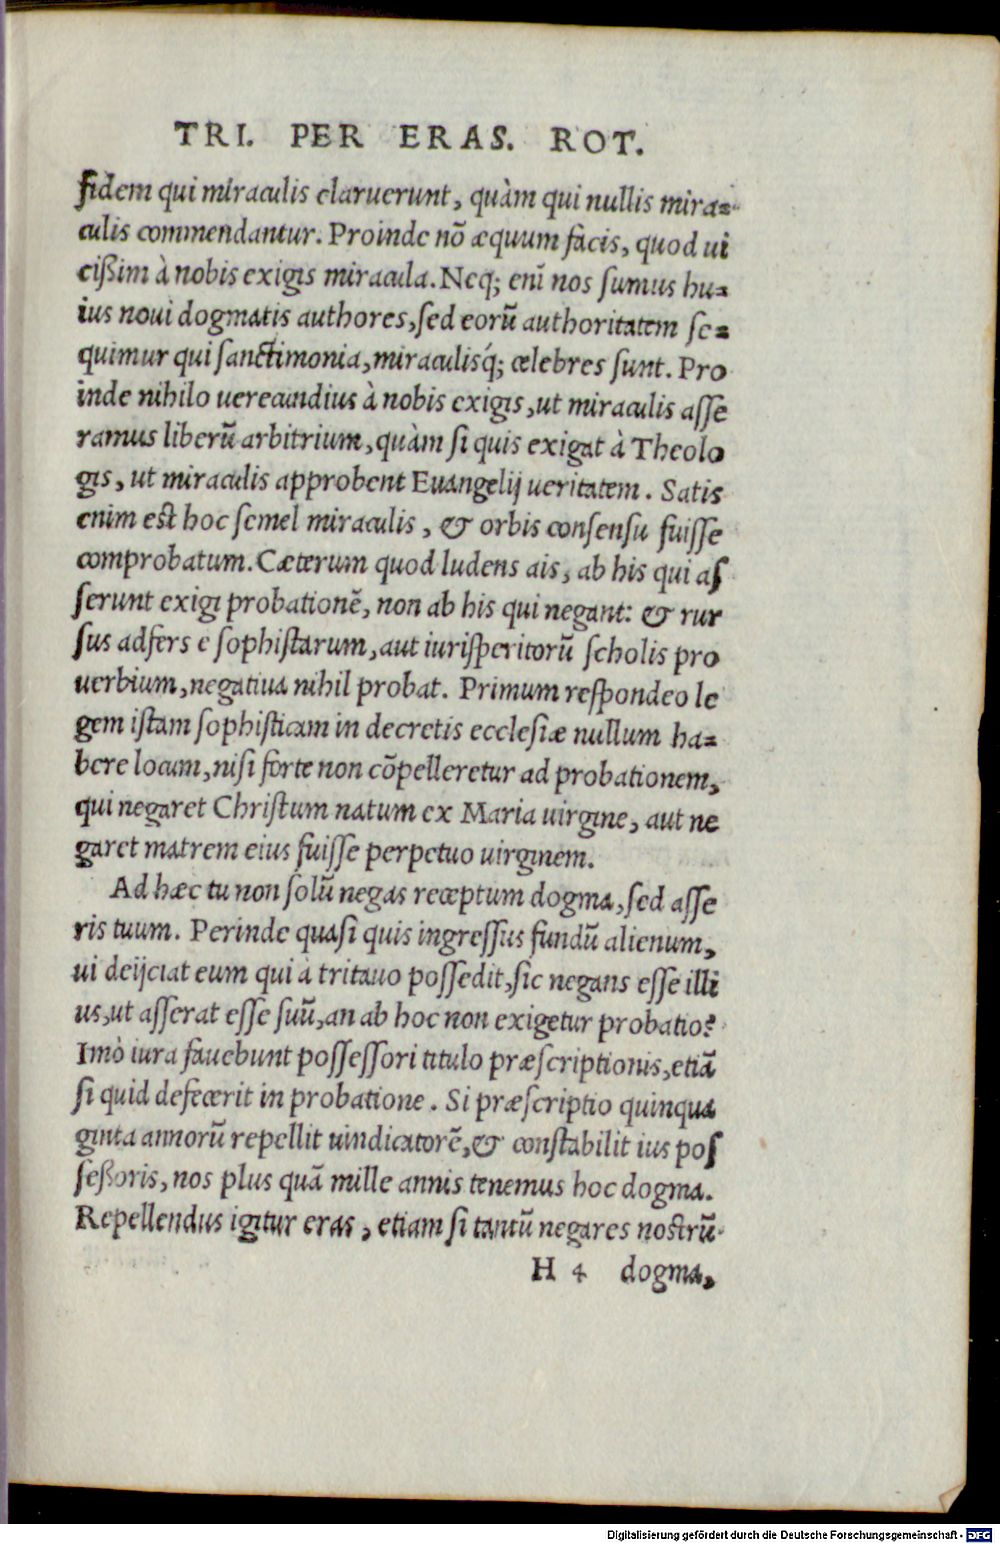 TRI. PER ERAS. ROT.
fidem qui miraculis claruerunt, quàm qui nullis mira=
culis commendantur. Proinde nõ æquum facis, quod ui
cißim à nobis exigis miracula. Neq; enĩ nos sumus hu=
ius noui dogmatis authores, sed eorũ authoritatem se=
quimur qui sanctimonia, miraculisq́; celebres sunt. Pro
inde nihilo uerecundius à nobis exigis, ut miraculis asse
ramus liberũ arbitrium, quàm si quis exigat à Theolo
gis, ut miraculis approbent Euangelij ueritatem. Satis
enim est hoc semel miraculis, & orbis consensu fuisse
comprobatum. Cæterum quod ludens ais, ab his qui as
serunt exigi probationẽ, non ab his qui negant: & rur
sus adfers e sophistarum, aut iurisperitorũ scholis pro
uerbium, negatiua nihil probat. Primum respondeo le
gem istam sophisticam in decretis ecclesiæ nullum ha=
bere locum, nisi forte non cõpelleretur ad probationem,
qui negaret Christum natum ex Maria uirgine, aut ne
garet matrem eius fuisse perpetuo uirginem.
Ad hæc tu non solũ negas receptum dogma, sed asse
ris tuum. Perinde quasi quis ingressus fundũ alienum,
ui deijciat eum qui à tritauo possedit, sic negans esse illi
us, ut asserat esse suũ, an ab hoc non exigetur probatio?
Imò iura fauebunt possessori titulo præscriptionis, etiã
si quid defecerit in probatione. Si præscriptio quinqua
ginta annorũ repellit uindicatorẽ, & constabilit ius pos
seßoris, nos plus quã mille annis tenemus hoc dogma.
Repellendus igitur eras, etiam si tantũ negares nostrũ
H 4 dogma,
Digitalisierung gefördert durch die Deutsche Forschungsgemeinschaft - DFG